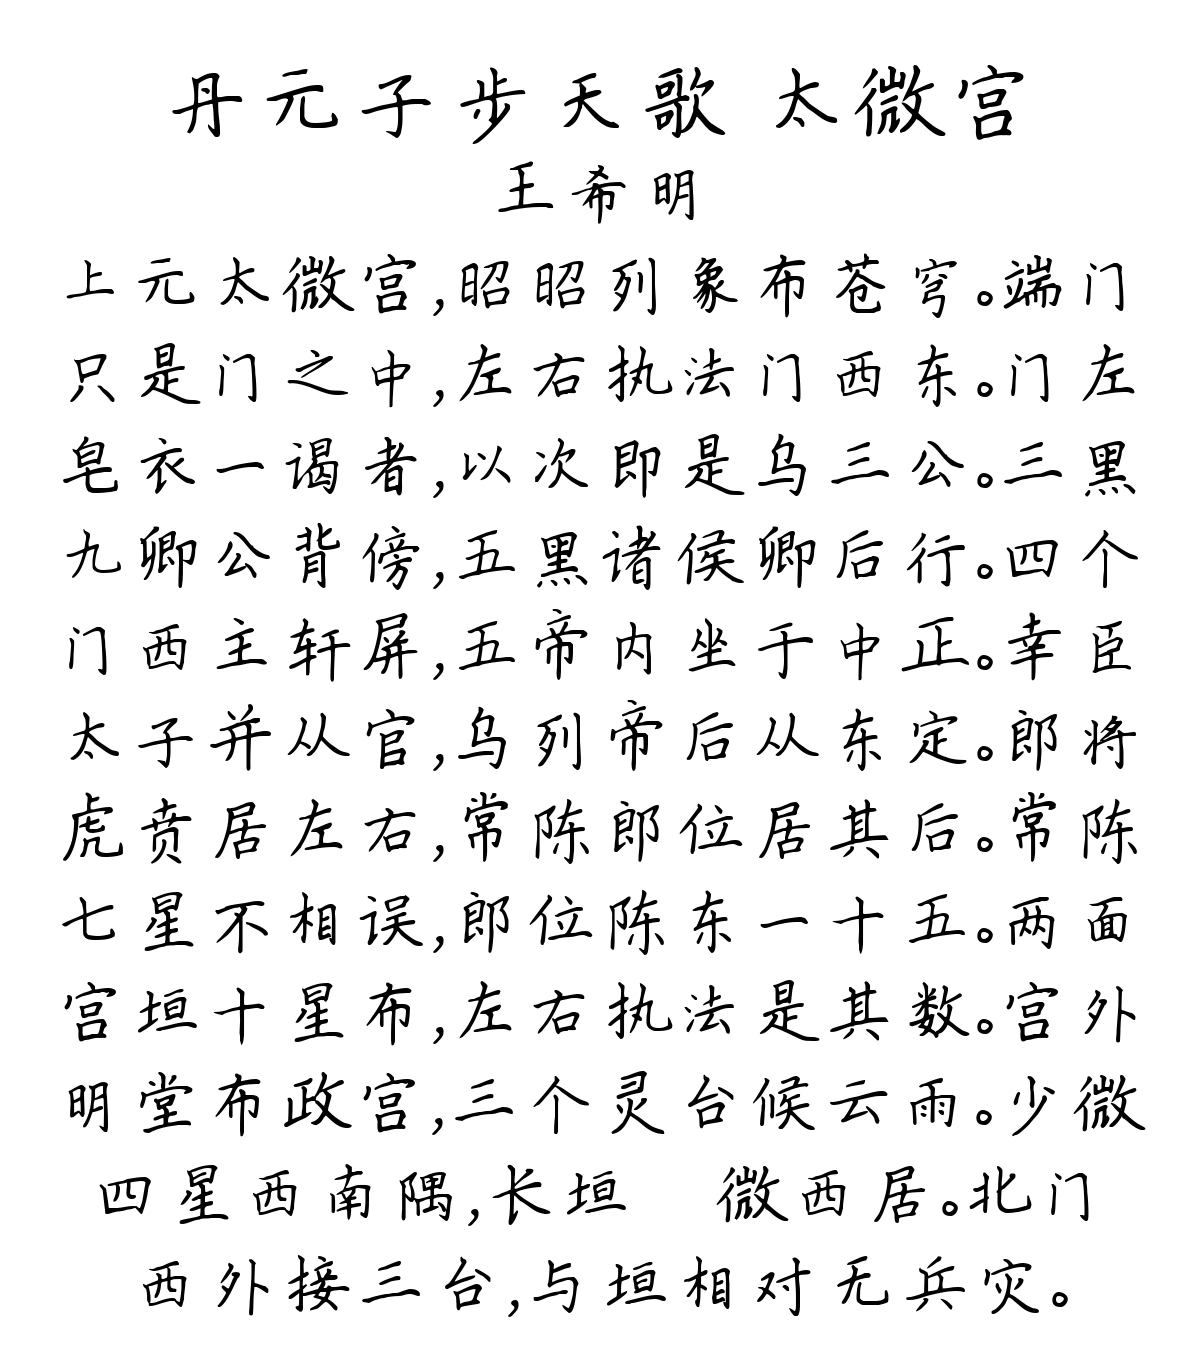 丹元子步天歌 太微宫
王希明
上元太微宫,昭昭列象布苍穹。端门
只是门之中,左右执法门西东。门左
皂衣一谒者,以次即是乌三公。三黑
九卿公背傍,五黑诸侯卿后行。四个
门西主轩屏,五帝内坐于中正。幸臣
太子并从官,乌列帝后从东定。郎将
虎贲居左右,常陈郎位居其后。常陈
七星不相误,郎位陈东一十五。两面
宫垣十星布,左右执法是其数。宫外
明堂布政宫,三个灵台候云雨。少微
四星西南隅,长垣 微西居。北门
西外接三台,与垣相对无兵灾。